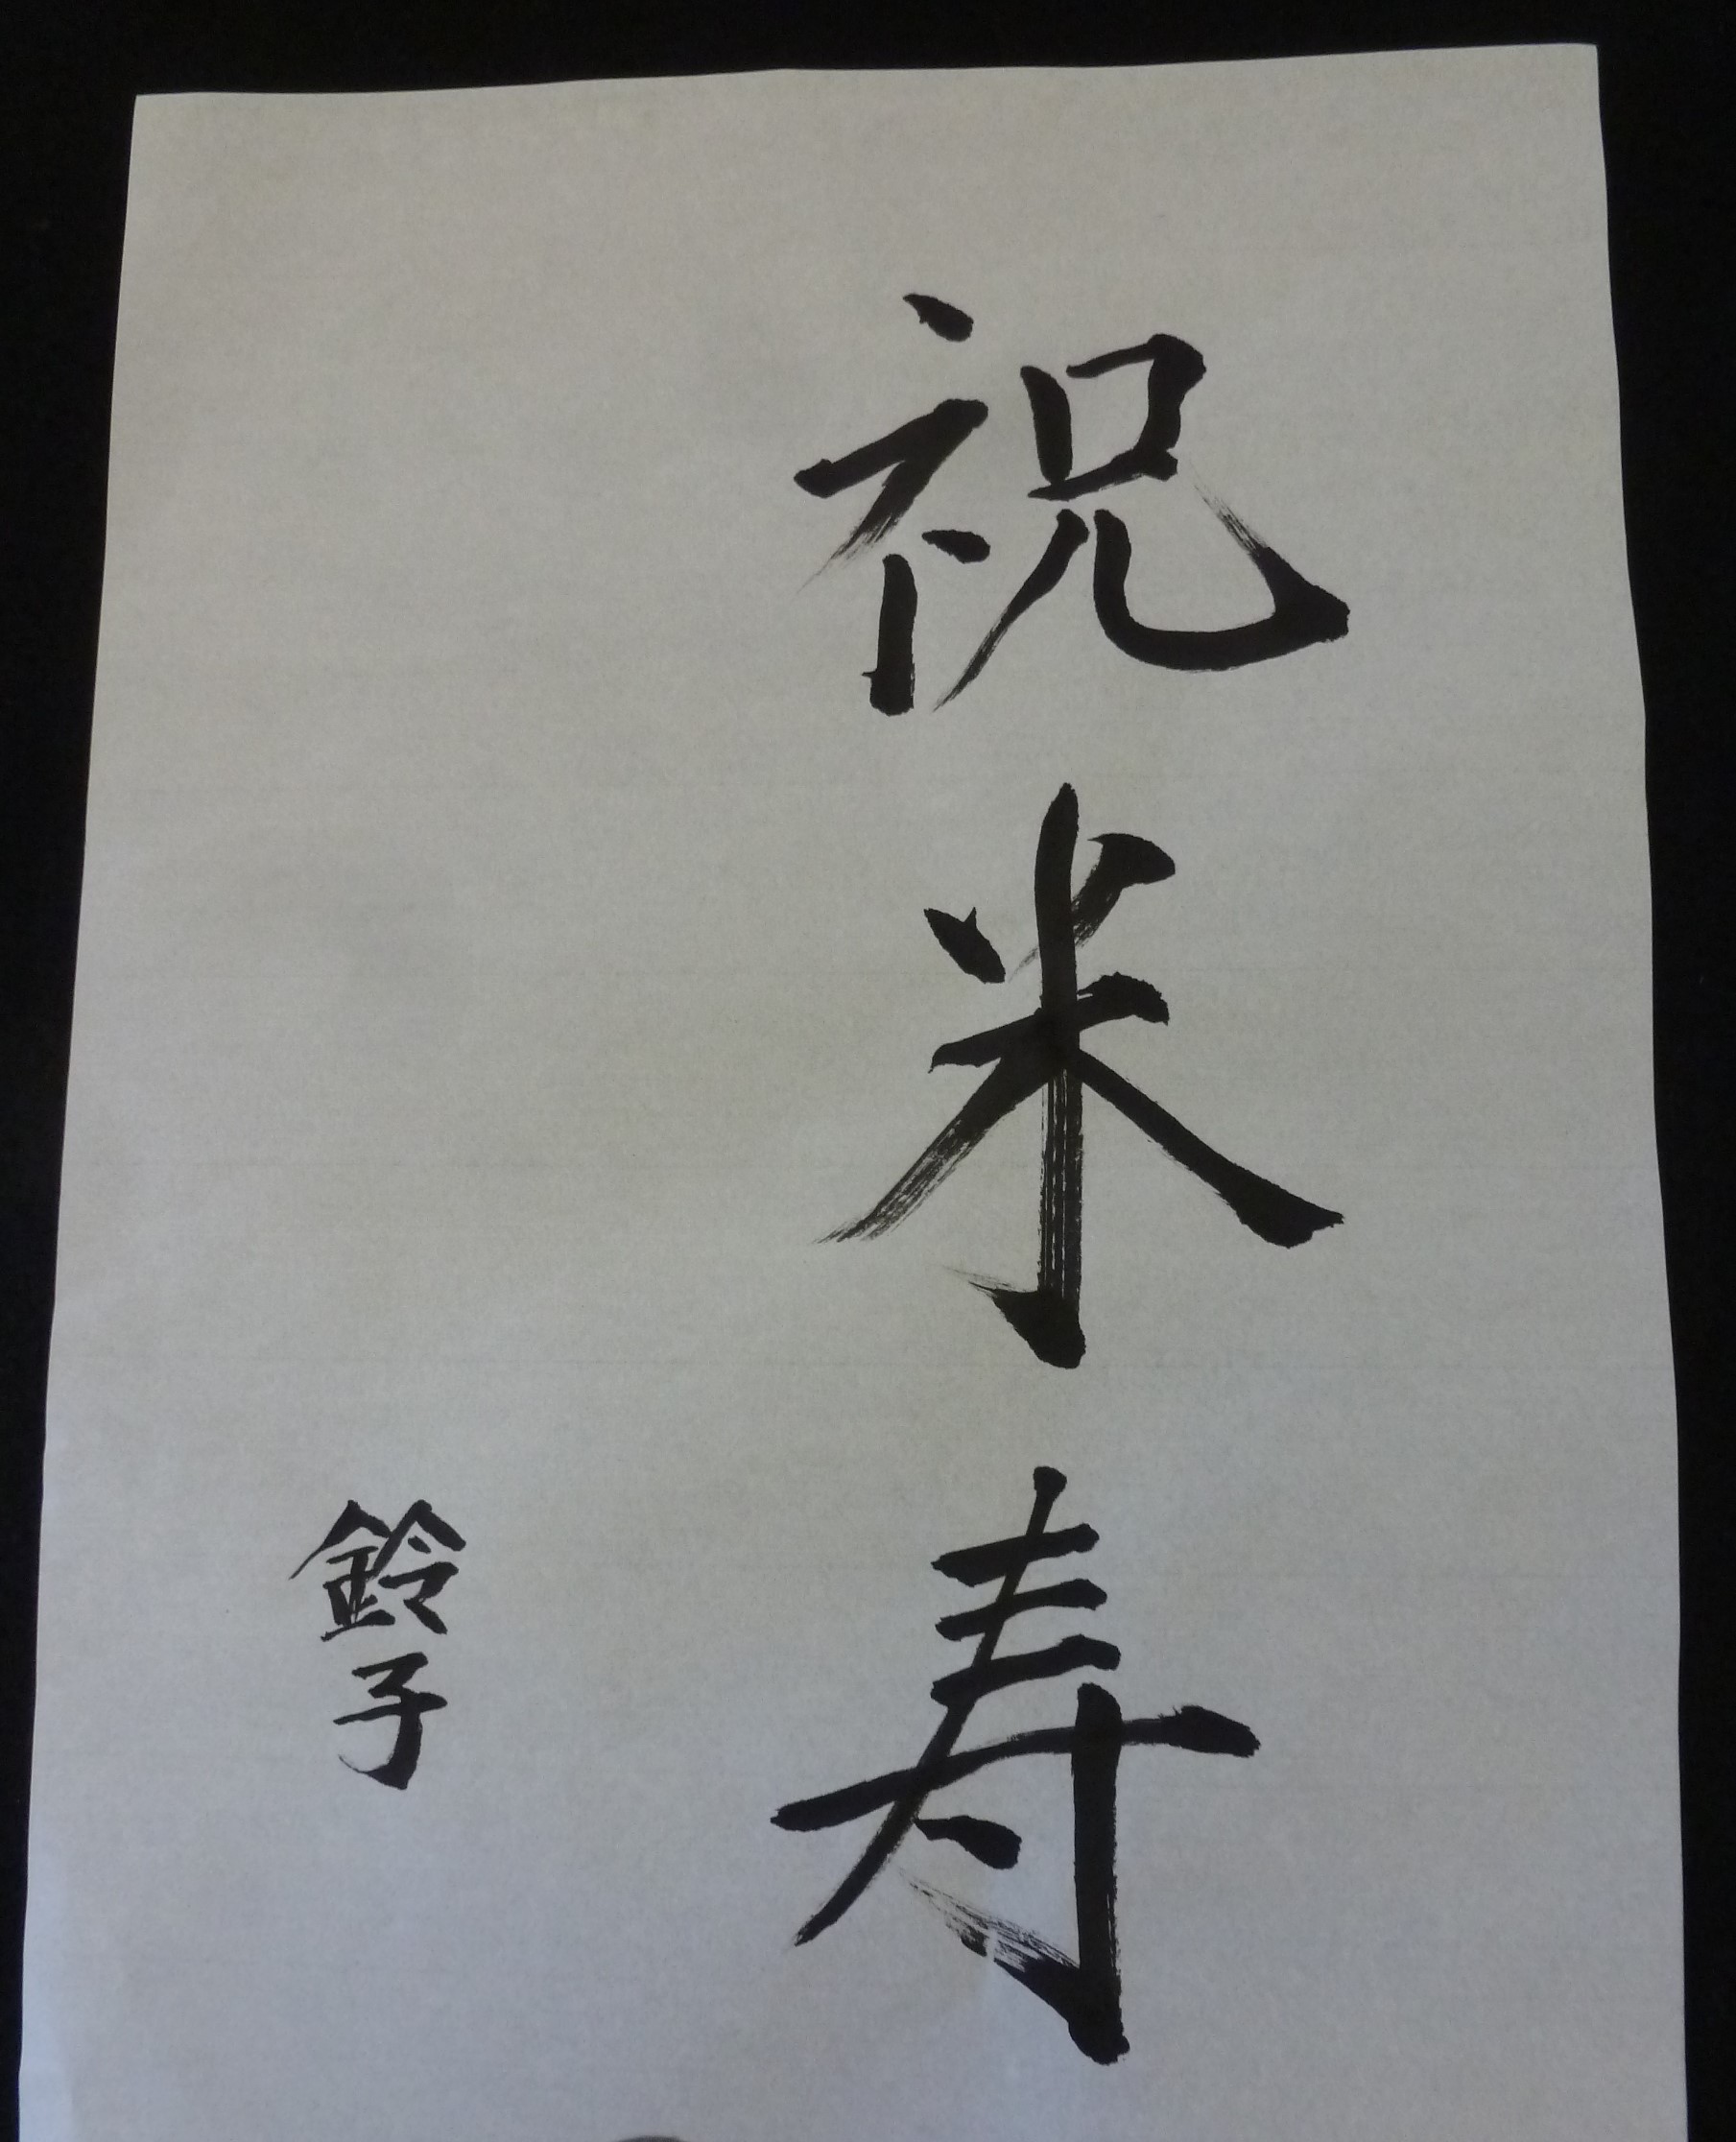 祝米寿
鈴子